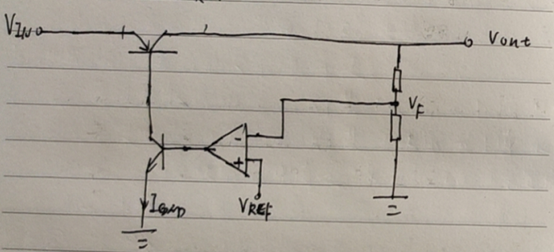 VIN
Vout
VF
-
+
IGND
VREF